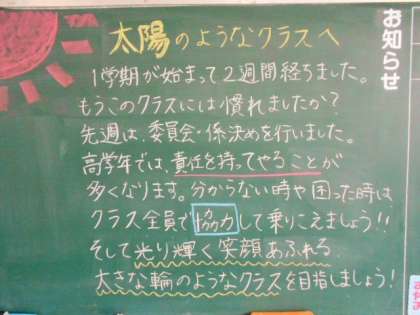 お知らせ
太陽のようなクラスへ
1学期が始まって2週間経ちました。
もうこのクラスには慣れましたか?
先週は、委員会・係決めを行いました。
高学年では、責任を持ってやることが
多くなります。分からない時や困った時は
クラス全員で協力して乗りこえましょう!!
そして光り輝く笑顔あふれる
大きな輪のようなクラスを目指しましょう!